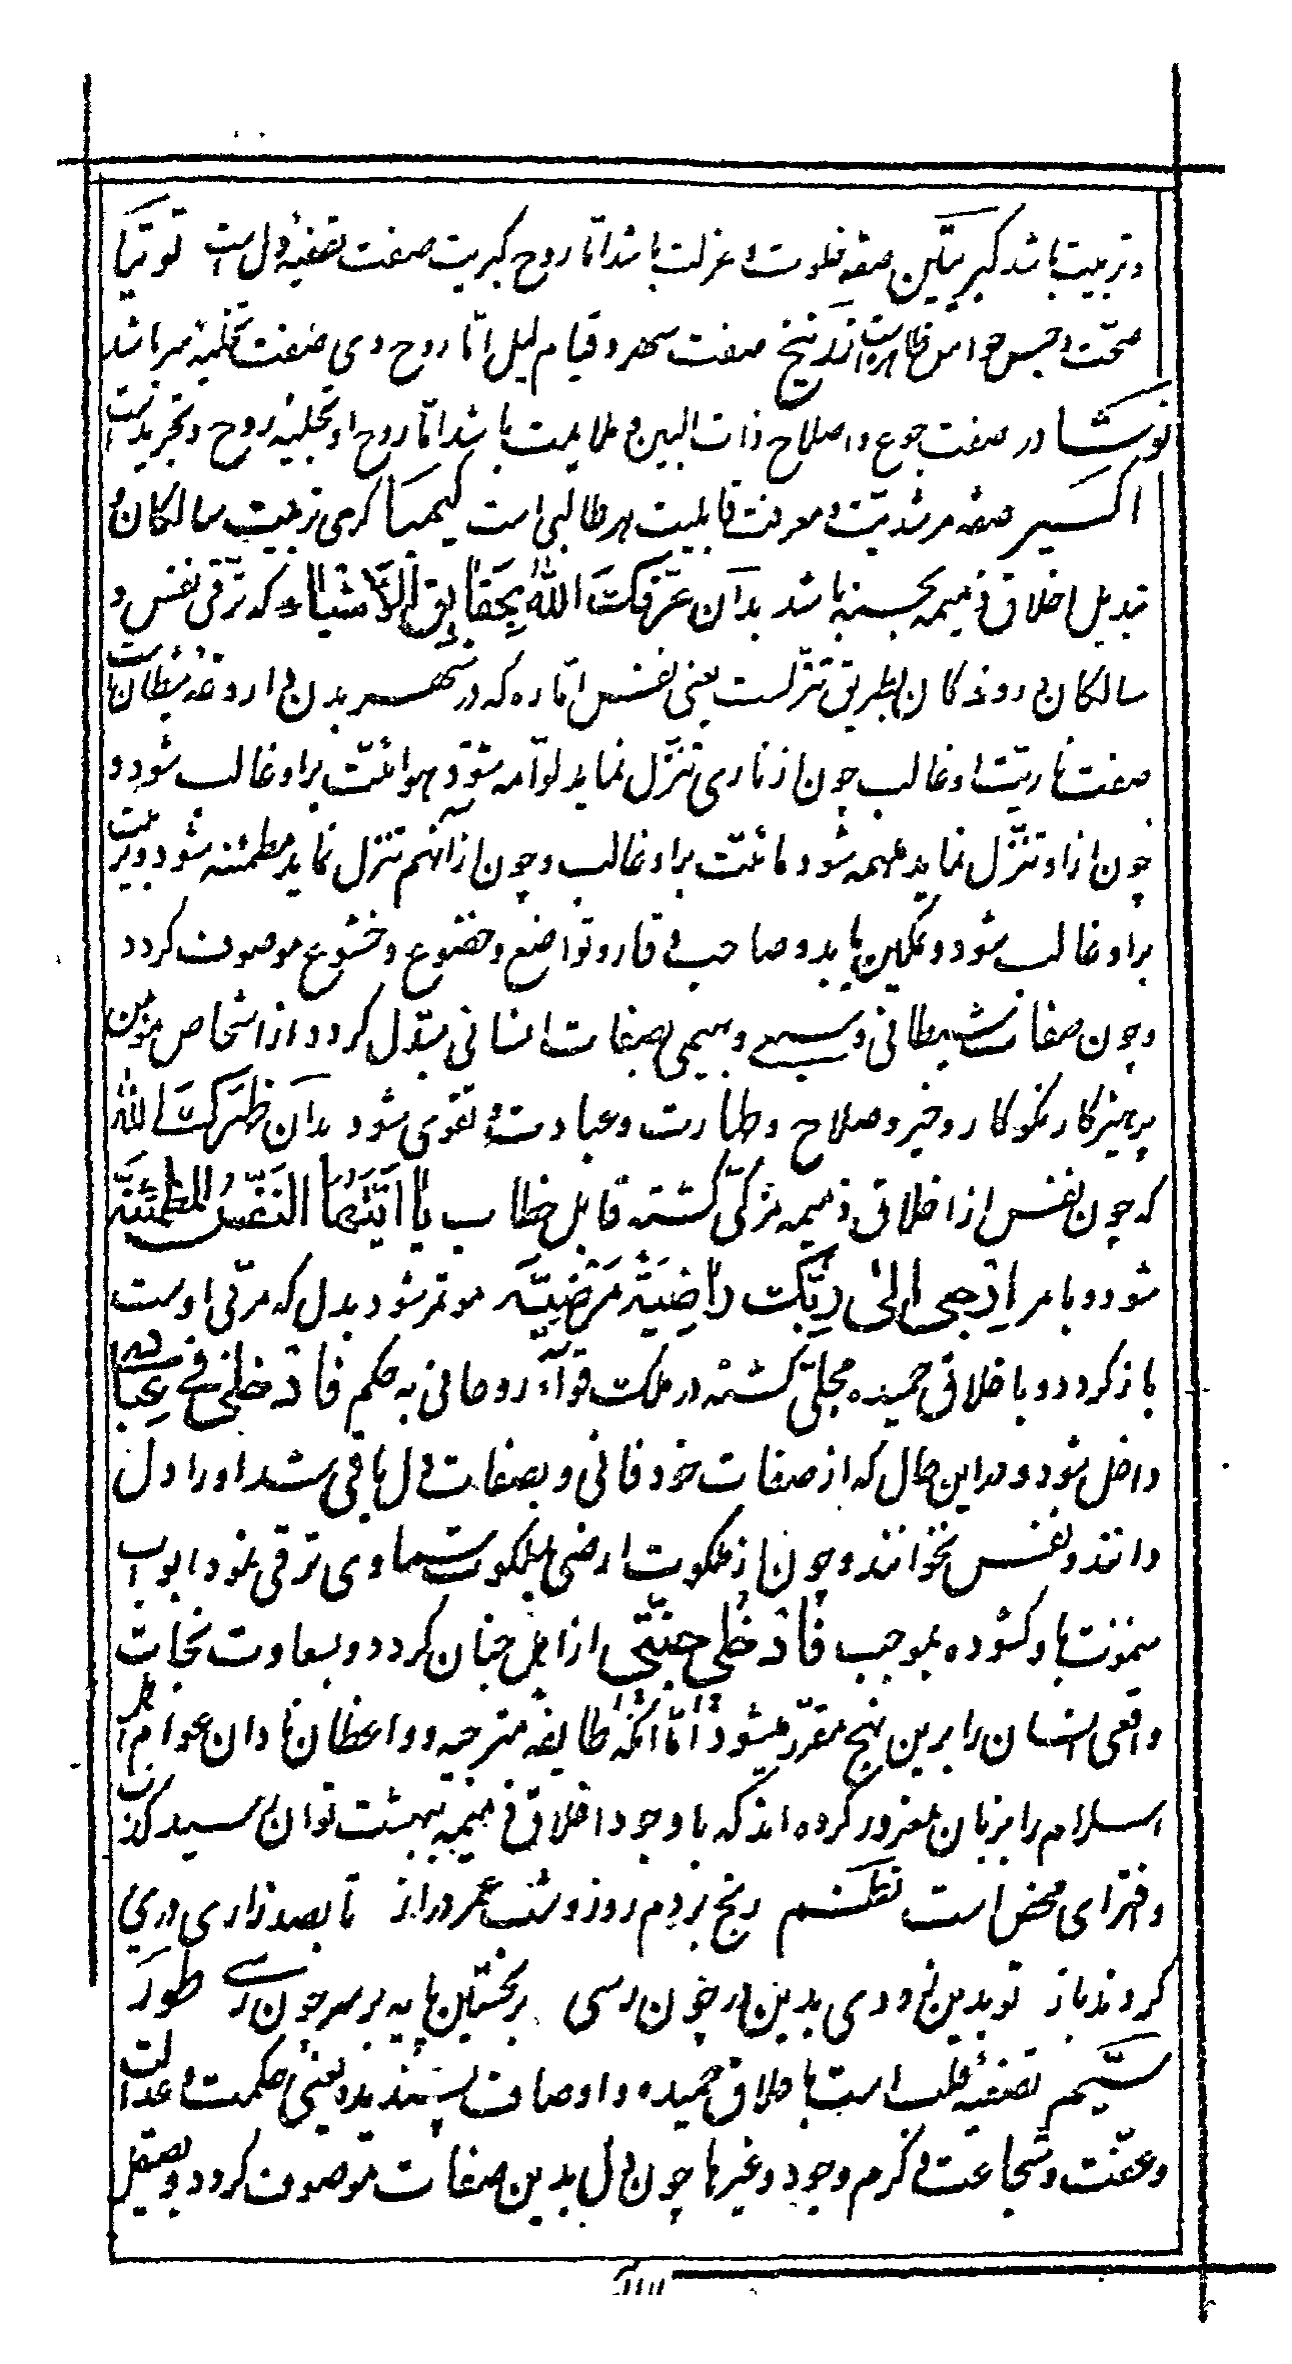 و تربیت باشد کبریتین صفه خلوت و عزلت باشد اما روح کبریت صفت تصفیهٔ دل است توتیا
صحت و حبس حواس ظاهره است زرنیخ صفت سهر و قیام لیل اما روح وی صفت تخلیهٔ سر باشد
نوشادر صفت جوع و اصلاح ذات البین و ملایمت باشد اما روح او تجلیهٔ روح و تجرید است
اکسیر صفه مرشدیت و معرفت قابلیت هر طالبی است کیمیا کرمی تربیت سالکان و
تبدیل اخلاق ذمیمه بحسنه باشد بدان عَرَّفَکَ اللهُ بِحَقایِقِ الاَشیاءِ که ترقی نفس و
سالکان و روندکان بطریق تنزلست یعنی نفس اماره که در شهر بدن داروغه شیطان است
صفت ناریت او غالب چون از ناری تنزل نماید لوامه شود هوائیت بر او غالب شود و
چون از او تنزل نماید ملهمه شود مائیت بر او غالب و چون از آنهم تنزل نماید مطمئنه شود و تربیت
بر او غالب شود و تمکین یابد و صاحب وقار و تواضع و خضوع و خشوع موصوف کردد
و چون صفات شیطانی و سبعی و بهیمی بصفات انسانی مبدل کردد و از اشخاص مؤمن
پرهیزکار نکوکار و خیر و صلاح و طهارت و عبادت و تقوی شود بدان طَهَّرَکَ الله
که چون نفس از اخلاق ذمیمه مزکّی کشته قابل خطاب یا اَیَّتُهَا النَّفْسُ المُطْمَئِنَّة
شود و بامر اِرْجِعی اِلی رَبِّکِ راضِیَةً مَرْضِیَّة مؤتمر شود بدل که مرقی اوست
باز کردد و باخلاق حمیده محلّی کشته در ملکت قوآء روحانی به حکم فَادْخُلی فی عِبادی
داخل شود و در این حال که از صفات خود فانی و بصفات دل باقی شد او را دل
دانند و نفس نخوانند و چون از ملکوت ارضی بملکوت سماوی ترقی نمود ابواب
سموت باو کشوده بموجب فَادْخُلی جَنَّتی از اهل جنان کردد و بسعادت نجات
واقعی انسان را برین نهج مقرر میشود اما آنکه طایفه مترجیه و واعظان نادان عوام اهل
اسلام را بزبان مغرور کرده اند که با وجود اخلاق ذمیمه ببهشت توان رسید کذب
و افترای محض است نظم رنج بردم روز و شب عمر دراز تا بصد زاری دری
کردند باز تو بدین زودی بدین در چون رسی بر نخستین پایه بر سر چون رسی طور
ستیم تصفیهٔ قلب است باخلاق حمیده و اوصاف پسندیده یعنی حکمت و عدالت
و عفت و شجاعت و کرم وجود و غیرها چون دل بدین صفات موصوف کردد و بصیقل